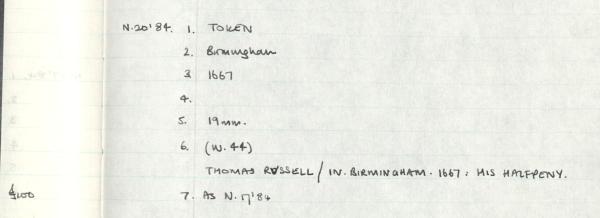 N.20'84. 1. TOKEN
2. Birmingham
3 1667
4.
5. 19mm.
6. (W.44)
THOMAS RUSSELL / IN. BIRMINGHAM. 1667: HIS HALFPENY.
£100 7. AS N.17'84